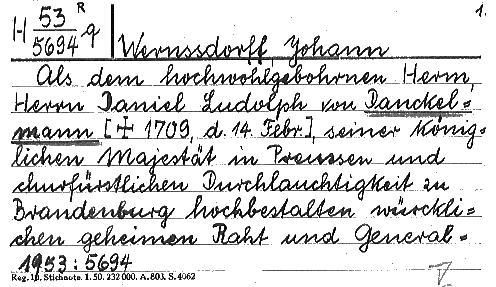 H 53 R q 1.
5694
Wernssdorff, Johann
Als dem hochwohlgebohrnen Herrn,
Herrn Daniel Ludolph von Danckel=
mann [† 1709, d. 14. Febr.], seiner König=
lichen Majestät in Preussen und
churfürstlichen Durchlauchtigkeit zu
Brandenburg hochbestalten würckli=
chen geheimen Raht und General=
1953:5694
Reg. 10. Stichnote. 1. 50. 232 000. A. 803. S. 4062